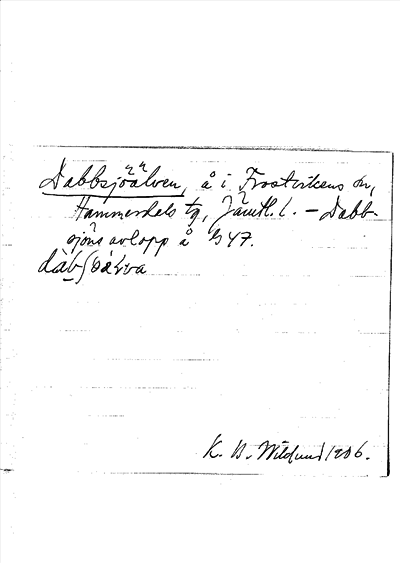 Dabbsjöälven, å i Frostvikens sn,
Hammerdals tg, Jämtl. l. – Dabb-
sjöns avlopp å
K. B. Wiklund 1906.